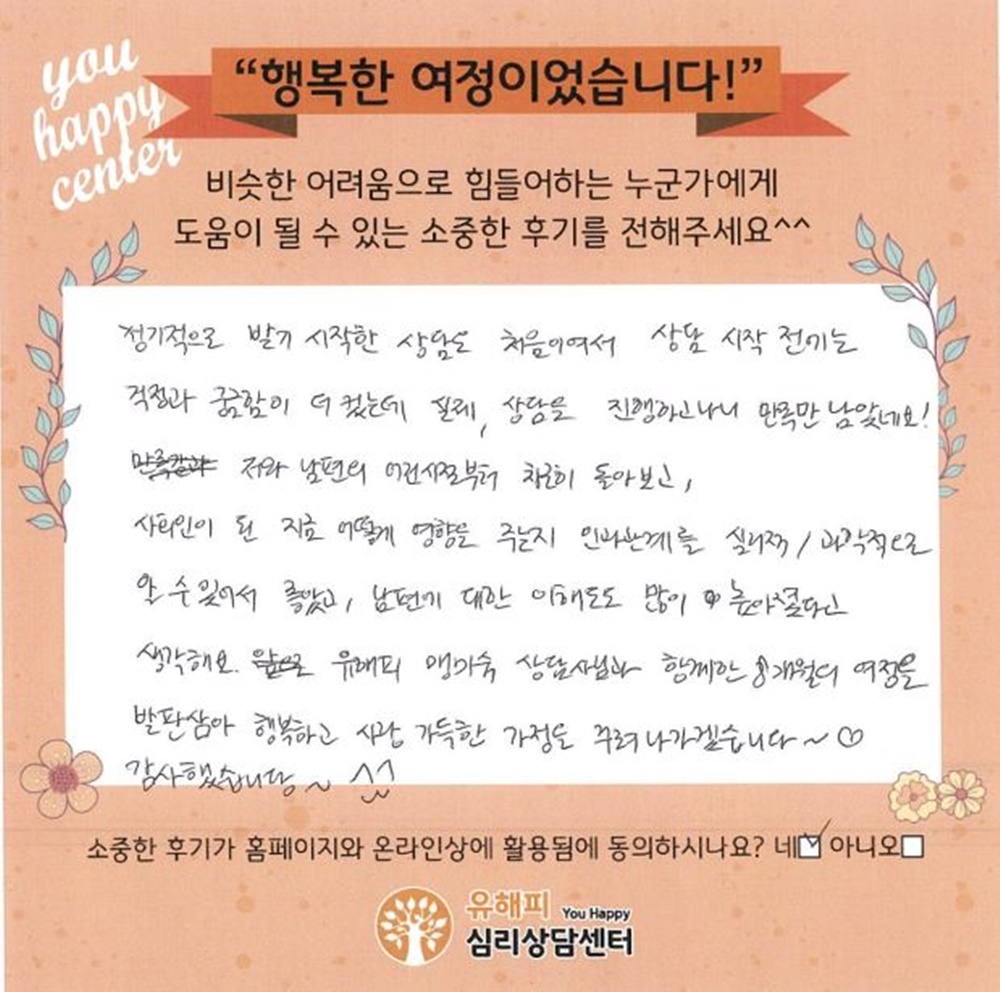 you
happy
center
“행복한 여정이었습니다!”
비슷한 어려움으로 힘들어하는 누군가에게
도움이 될 수 있는 소중한 후기를 전해주세요^^
정기적으로 받기 시작한 상담은 처음이여서 상담 시작 전에는
걱정과 궁금함이 더 컸는데 실제, 상담을 진행하고나니 만족만 남았네요!
저와 남편의 어린시절부터 차근히 돌아보고,
사회인이 된 지금 어떻게 영향을 주는지 인과관계를 심리적/과학적으로
알 수 있어서 좋았고, 남편에 대한 이해도도 많이 높아졌다고
생각해요. 유해피 맹가숙 상담사님과 함께한 8개월의 여정을
발판삼아 행복하고 사랑 가득한 가정을 꾸려나가겠습니다~♡
감사했습니다~ ^^
소중한 후기가 홈페이지와 온라인상에 활용됨에 동의하시나요? 네☑ 아니오□
유해피 You Happy
심리상담센터